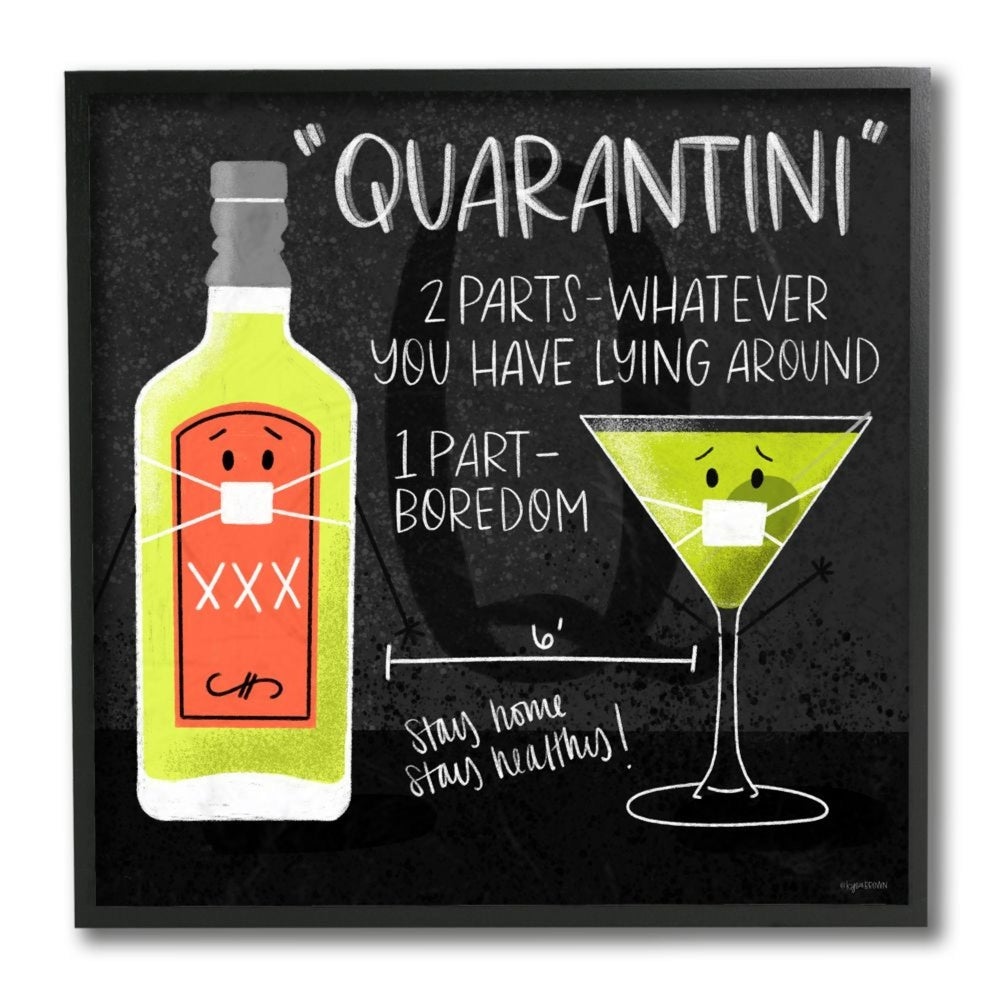 "QUARANTINI"
2 PARTS-WHATEVER
YOU HAVE LYING AROUND
1 PART-
BOREDOM
XXX
6'
stay home
stay healthy!